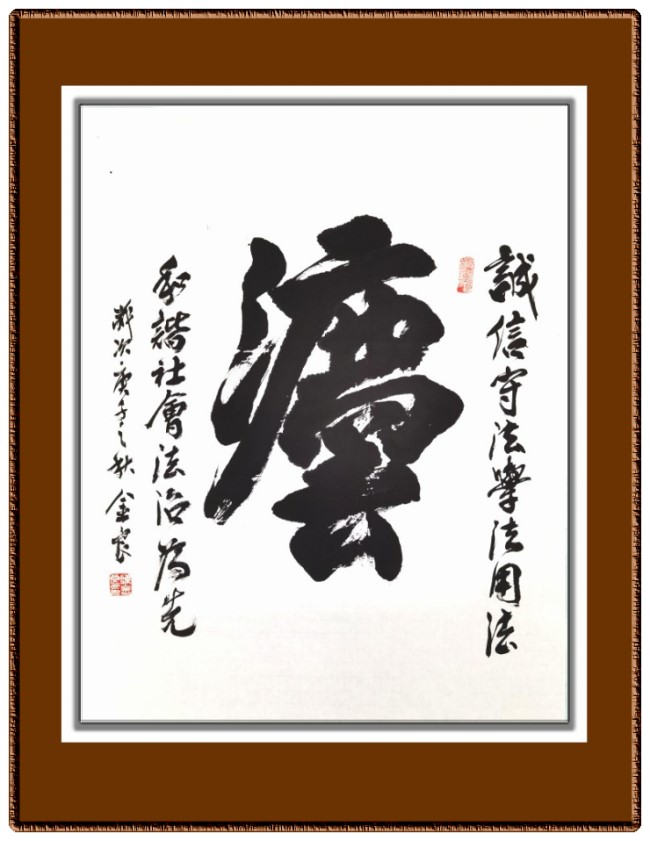 誠信守法學法用法
灋
和諧社會法治為先
歲次庚子之秋 金宏